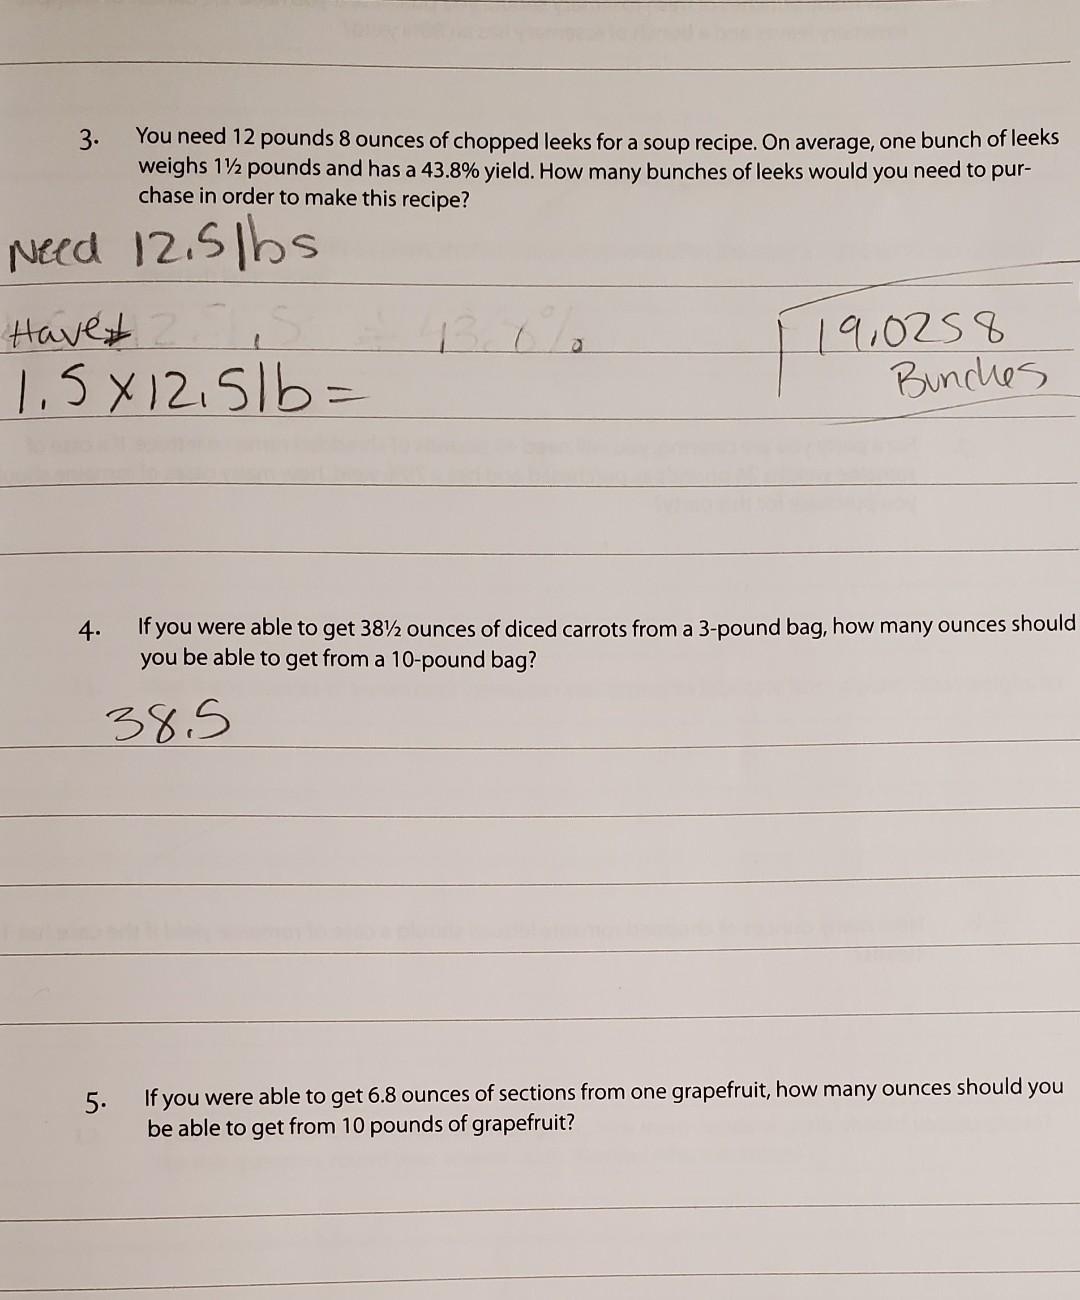 3. You need 12 pounds 8 ounces of chopped leeks for a soup recipe. On average, one bunch of leeks
weighs 1½ pounds and has a 43.8% yield. How many bunches of leeks would you need to pur-
chase in order to make this recipe?
Need 12.5lbs
Have
1.5 x 12.5lb =
19.0258
Bunches
4. If you were able to get 38½ ounces of diced carrots from a 3-pound bag, how many ounces should
you be able to get from a 10-pound bag?
38.5
5. If you were able to get 6.8 ounces of sections from one grapefruit, how many ounces should you
be able to get from 10 pounds of grapefruit?